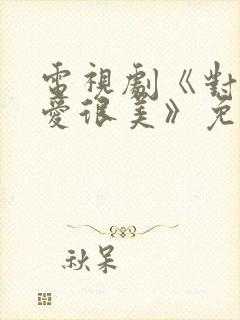 電視劇《對
愛很美》免
秋呆